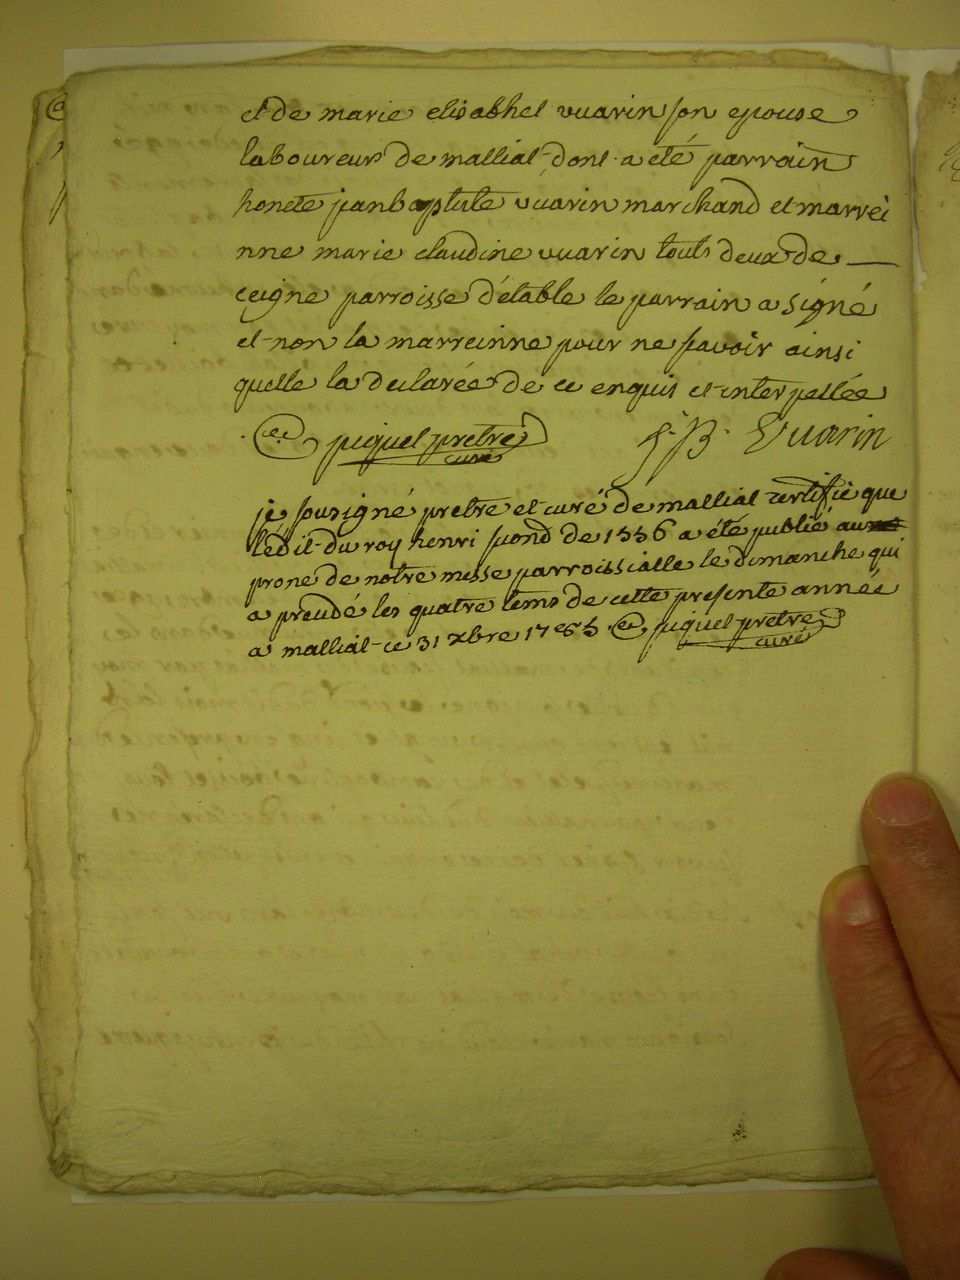 et de marie elisabhet vuarin son epouse
laboureurs de mallial dont a été parrain
honete janbaptiste vuarin marchand et marrei
nne marie claudine vuarin touts deux de
ceigne parroisse d'étable le parrain a signé
et non la marreinne pour ne savoir ainsi
quelle la declarée de ce enquis et interpellée
piquel pretre curé J. B. Vuarin
je sousigné pretre et curé de mallial certifie que
lédit du roy henri second de 1556 a été publié au
prone de notre messe parroissialle le dimanche qui
a precedé les quatre tems de cette presente année
a mallial ce 31 xbre piquel pretre
curé